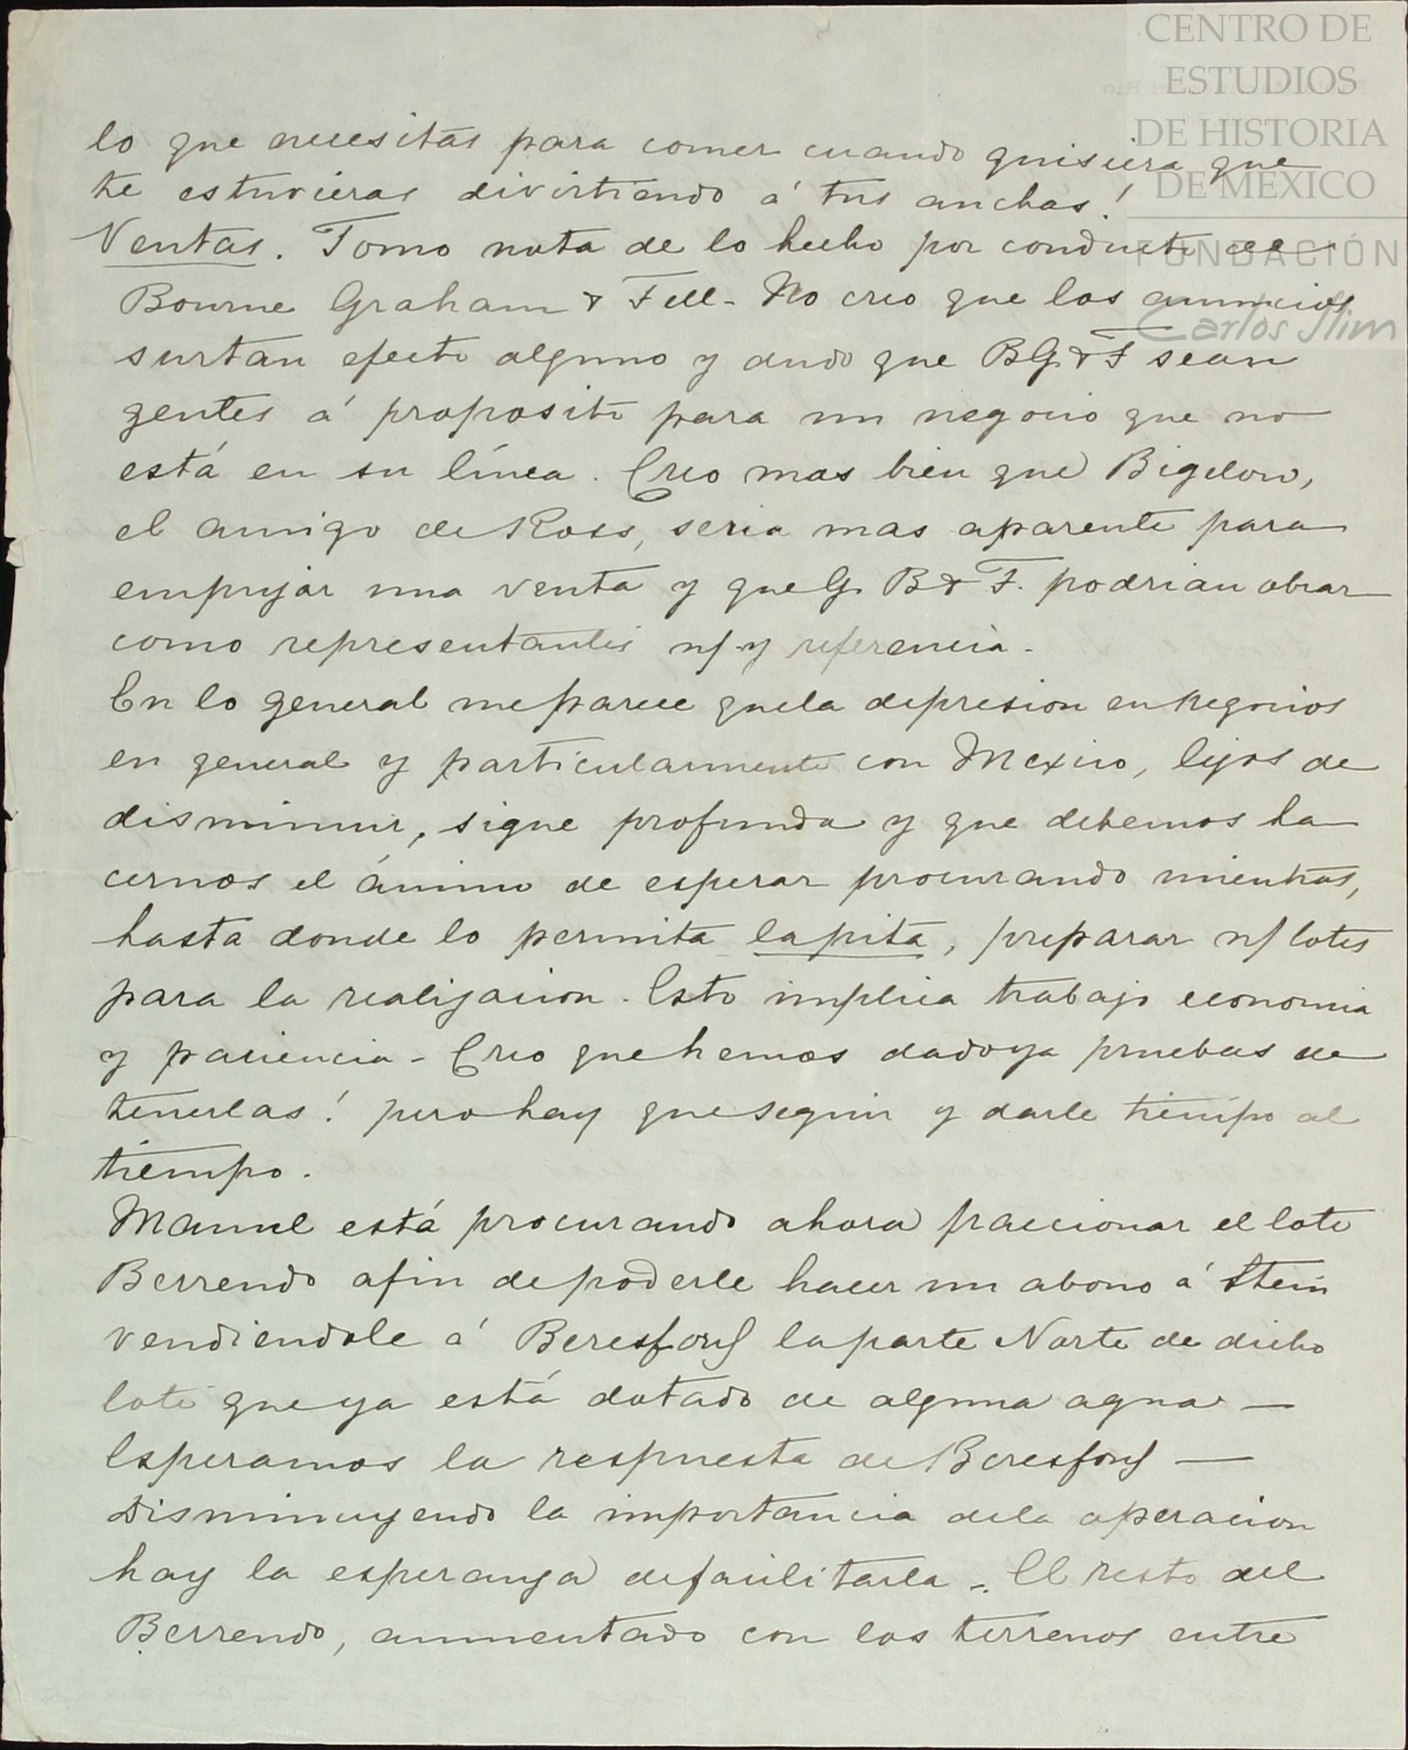 CENTRO DE
ESTUDIOS
DE HISTORIA
DE MEXICO
FUNDACIÓN
Carlos Slim
lo que necesitas para comer cuando quisiera que
te estuvieras divirtiendo á tus anchas!
Ventas. Tomo nota de lo hecho por conducto de
Bourne Graham & Fell - No creo que los anuncios
surtan efecto alguno y dudo que BG & F sean
gentes á proposito para un negocio que no
está en su línea. Creo mas bien que Bigelow,
el amigo de Ross, seria mas aparente para
empujar una venta y que G. B & F. podrian obrar
como representantes n/ y referencia.
En lo general me parece que la depresion en negocios
en general y particularmente con Mexico, lejos de
disminuir, sigue profunda y que debemos ha
cernos el ánimo de esperar procurando mientras,
hasta donde lo permita la pita, preparar n/ lotes
para la realizacion. Esto implica trabajo economia
y paciencia - Creo que hemos dado ya pruebas de
tenerlas! pero hay que seguir y darle tiempo al
tiempo.
Manuel está procurando ahora fraccionar el lote
Berrendo afin de poderle hacer un abono á Stein
vendiendole á Beresford la parte Norte de dicho
lote que ya está dotado de alguna agua —
Esperamos la respuesta de Beresford —
Disminuyendo la importancia de la operacion
hay la esperanza de facilitarla - El resto del
Berrendo, aumentado con los terrenos entre